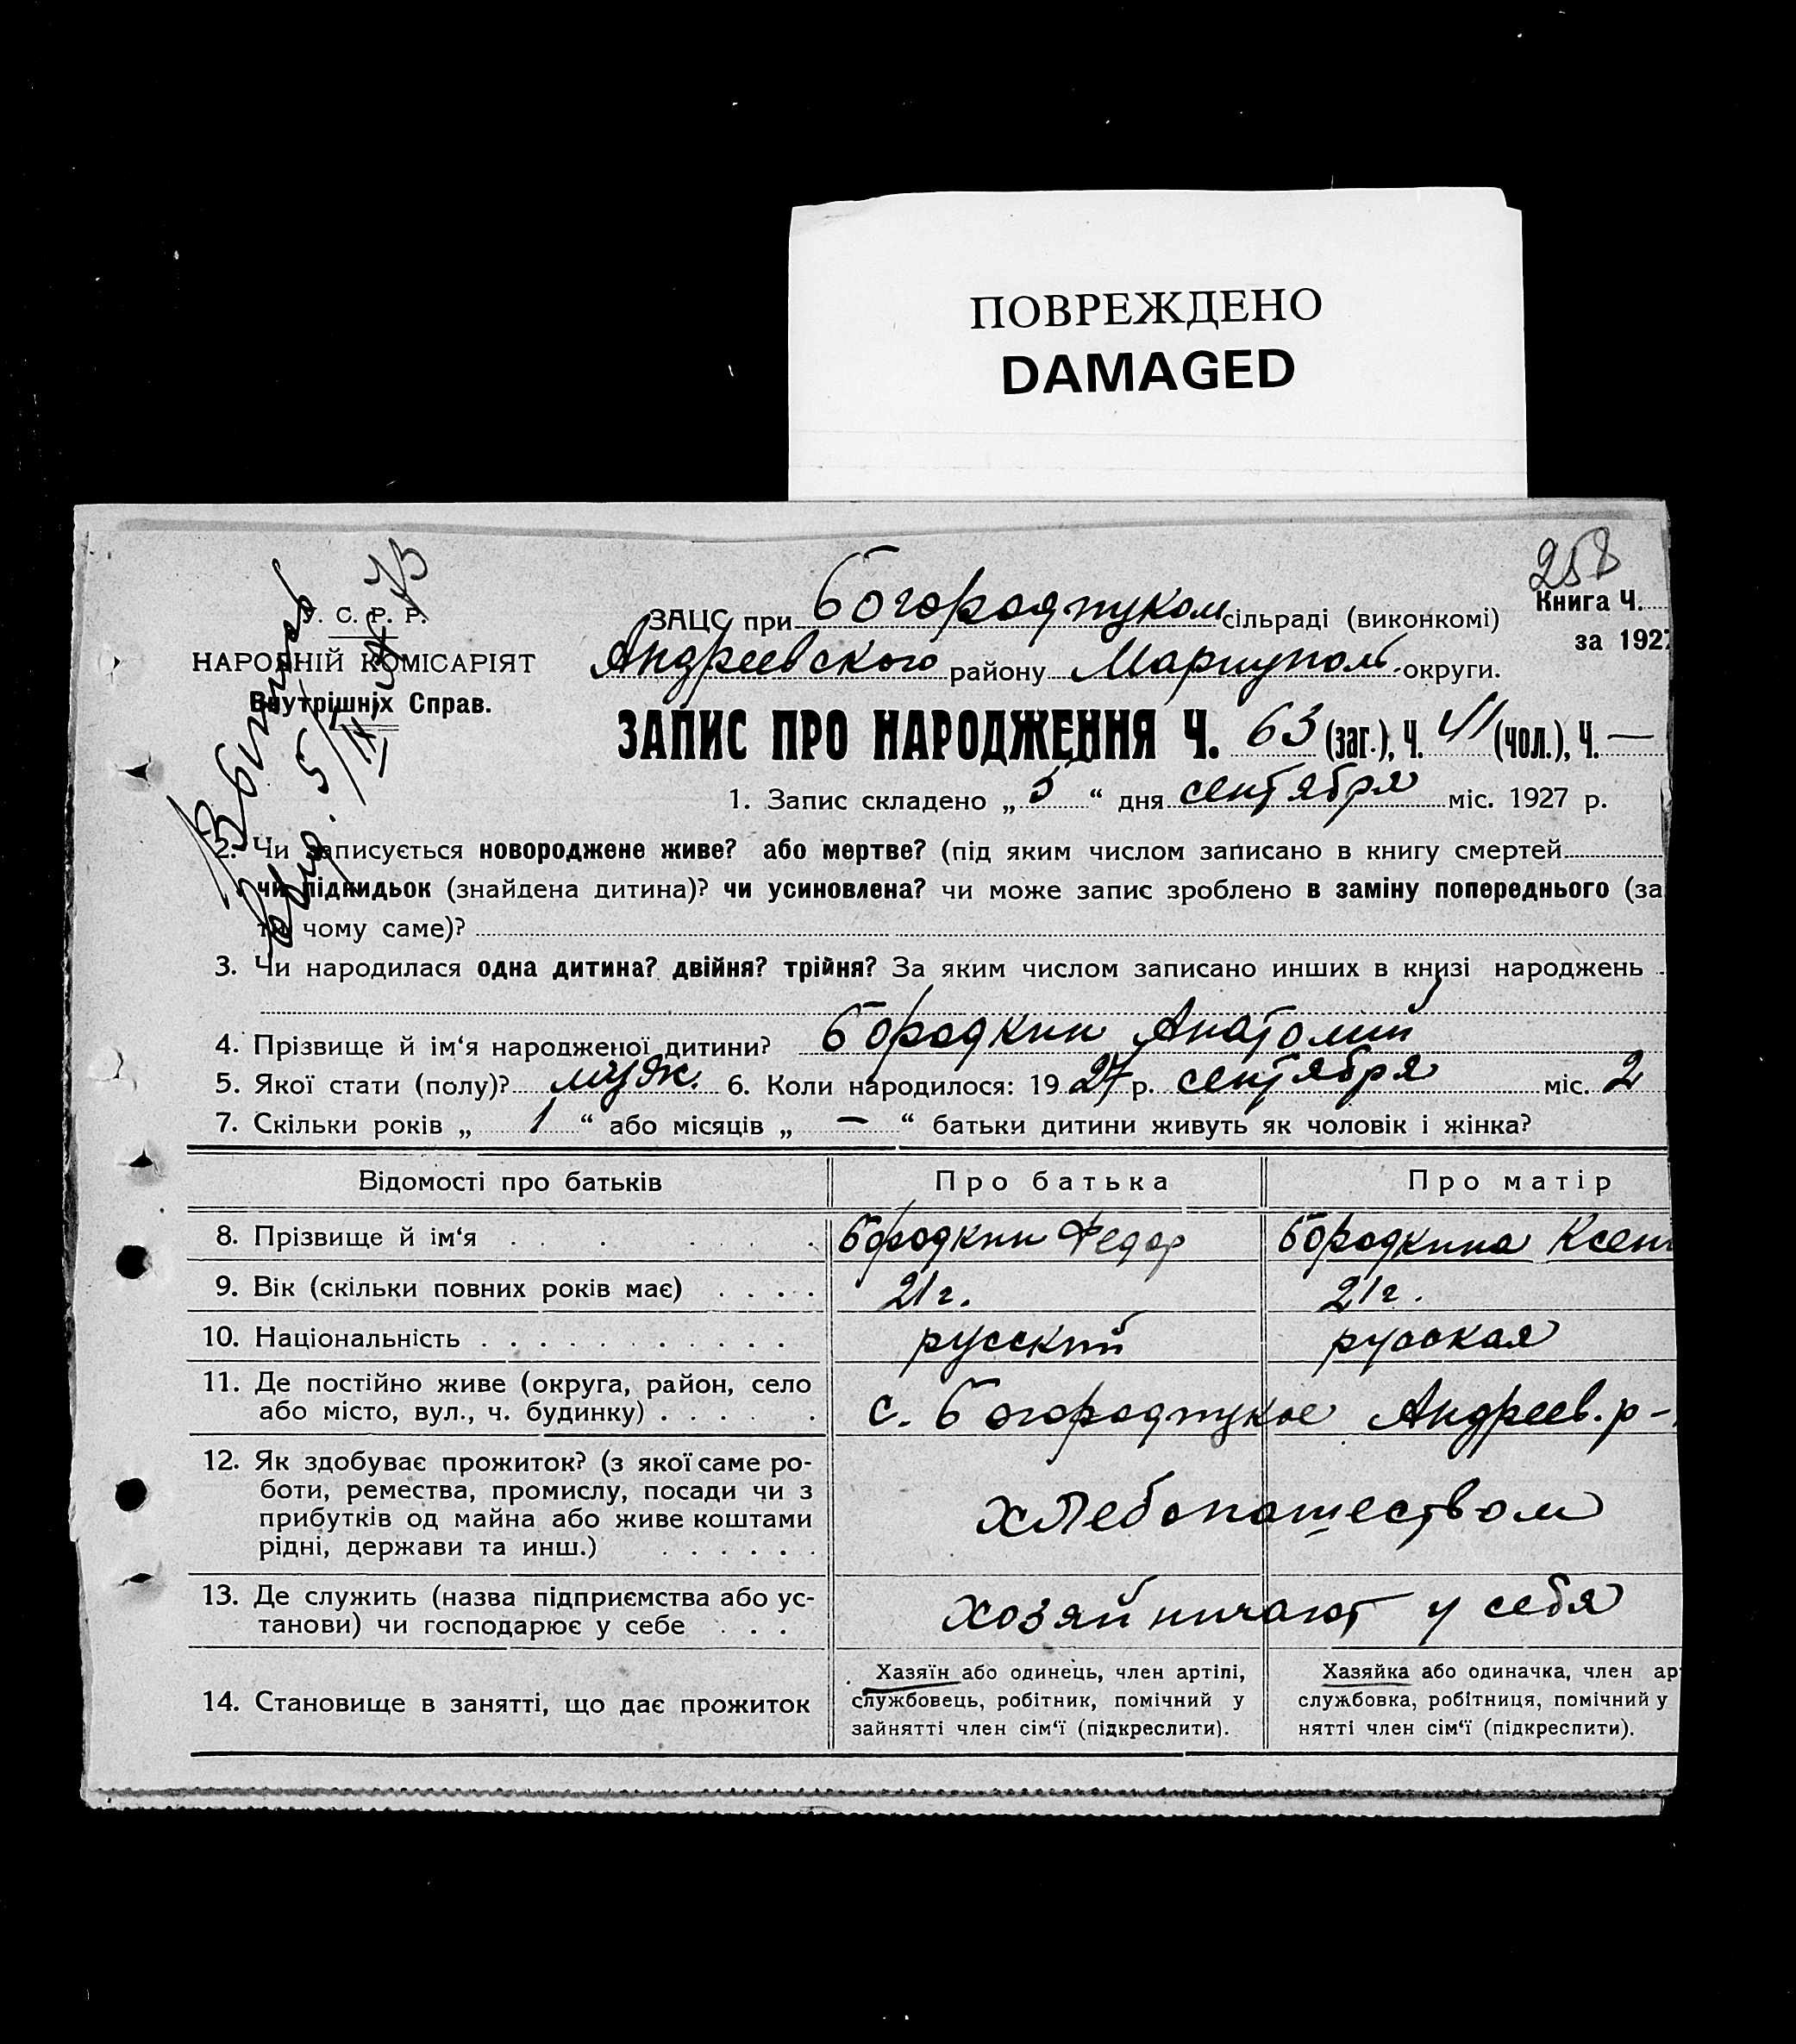 ПОВРЕЖДЕНО
DAMAGED
258
У. С. Р. Р.
НАРОДНІЙ КОМІСАРІЯТ
Внутрішніх Справ.
ЗАЦС при Богородицком сільраді (виконкомі)
Книга Ч.
за 1927
Андреевского району Мариуполь. округи.
ЗАПИС ПРО НАРОДЖЕННЯ Ч. 63 (заг.), Ч. 41 (чол.), Ч. —
1. Запис складено „ 5 “ дня сентября міс. 1927 р.
2. Чи записується новороджене живе? або мертве? (під яким числом записано в книгу смертей
чи підкидьок (знайдена дитина)? чи усиновлена? чи може запис зроблено в заміну попереднього (за
чому саме)?
3. Чи народилася одна дитина? двійня? трійня? За яким числом записано инших в книзі народжень
4. Прізвище й ім‘я народженої дитини? Бородкин Анатолий
5. Якої стати (полу)? муж. 6. Коли народилося: 1927 р. сентября міс. 2
7. Скільки років „ 1 “ або місяців „ — “ батьки дитини живуть як чоловік і жінка?
Відомості про батьків Про батька Про матір
8. Прізвище й ім‘я Бородкин Федор Бородкина Ксен
9. Вік (скільки повних років має) 21 г. 21 г.
10. Національність русский русская
11. Де постійно живе (округа, район, село
або місто, вул., ч. будинку) с. Богородицкое Андреев. р-
12. Як здобуває прожиток? (з якої саме ро-
боти, ремества, промислу, посади чи з
прибутків од майна або живе коштами
рідні, держави та инш.) хлебопашеством
13. Де служить (назва підприємства або ус-
танови) чи господарює у себе хозяйничают у себя
14. Становище в занятті, що дає прожиток
Хазяїн або одинець, член артілі,
службовець, робітник, помічний у
зайнятті член сім‘ї (підкреслити).
Хазяйка або одиначка, член ар
службовка, робітниця, помічний у
нятті член сім‘ї (підкреслити).